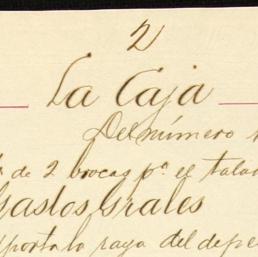 2
La Caja
Del número
de 2 brocas pª el tala
Gastos Grales
importa lo raya del depe